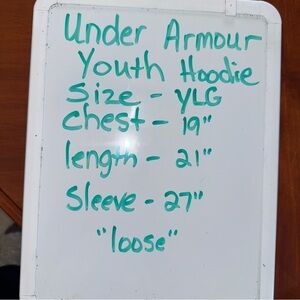 Under Armour
Youth Hoodie
Size - YLG
Chest - 19"
length - 21"
Sleeve - 27"
"loose"